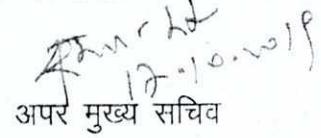 17.10.2019
अपर मुख्य सचिव